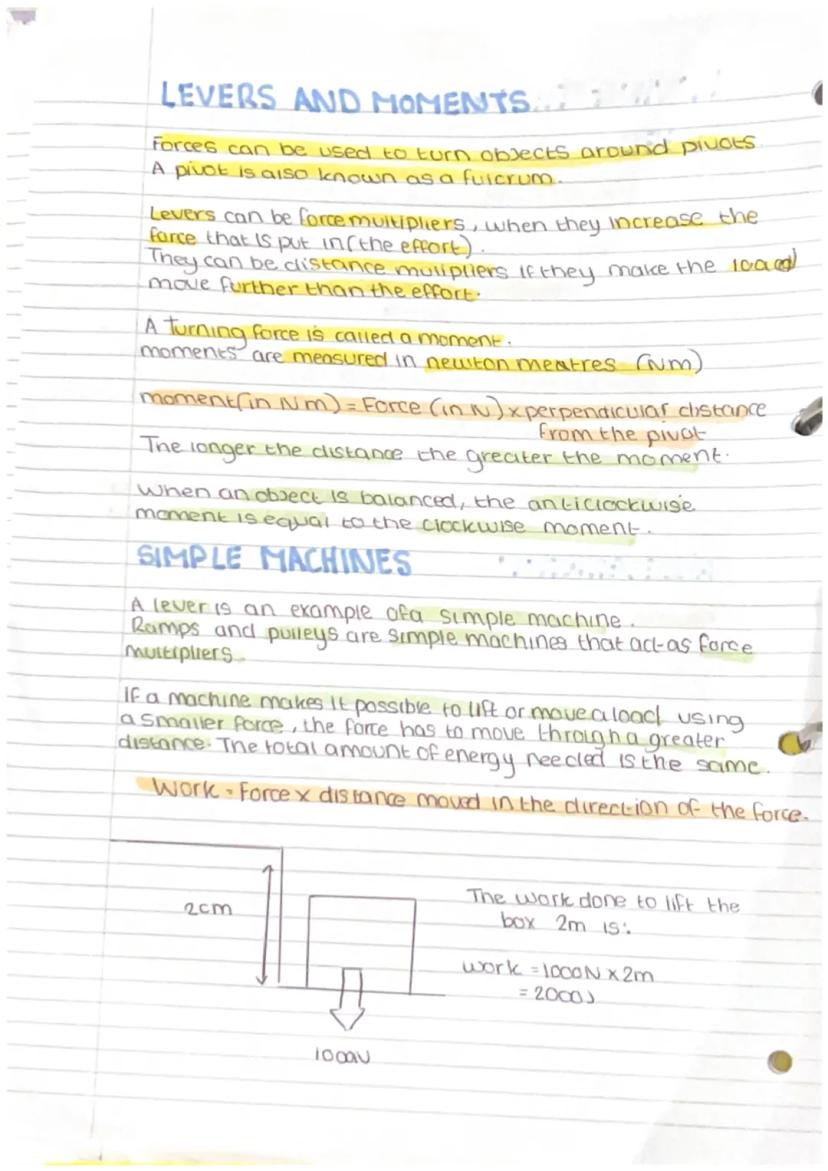 LEVERS AND MOMENTS
Forces can be used to turn objects around pivots
A pivot is also known as a fulcrum.
Levers can be force multipliers, when they increase the
force that is put in (the effort).
They can be distance mulipliers if they make the load
move further than the effort.
A Turning force is called a moment.
moments are measured in newton meatres (Nm)
moment (in Nm) = Force (in N) x perpendicular distance
from the pivot
The longer the distance the greater the moment.
When an object is balanced, the anticlockwise
moment is equal to the clockwise moment.
SIMPLE MACHINES
A lever is an example of a simple machine.
Ramps and pulleys are simple machines that act as force
multipliers.
If a machine makes it possible to lift or move a load using
a smaller force, the force has to move through a greater
distance. The total amount of energy needed is the same.
Work = Force x distance moved in the direction of the force.
2cm
The work done to lift the
box 2m is:
work = 1000N x 2m
= 2000J
1000N